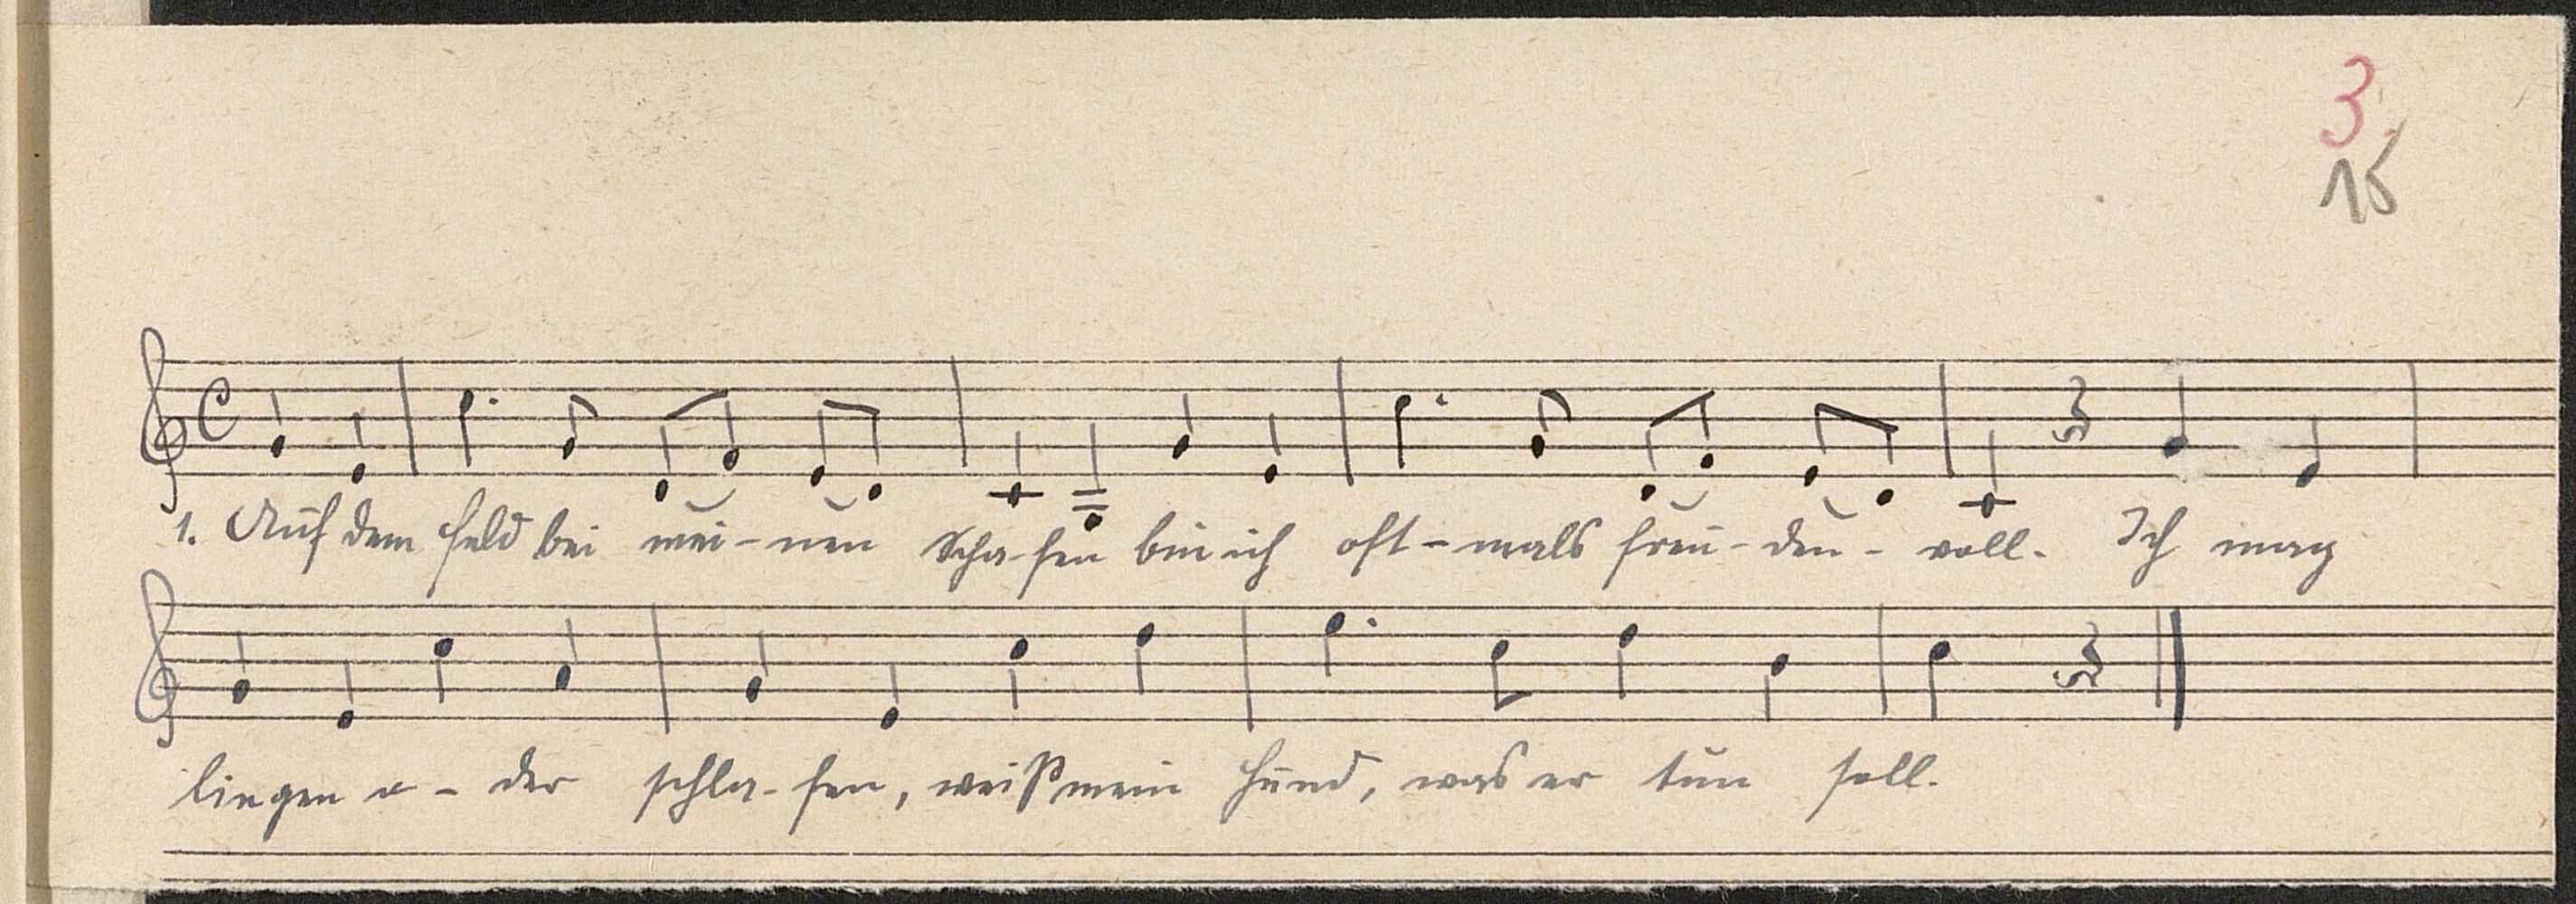 3.
15
1. Auf dem Feld bei mei-nen Scha-fen bin ich oft-mals freu-den-voll. Ich mag
liegen o-der schla-fen, weiß mein Hund, was er tun soll.